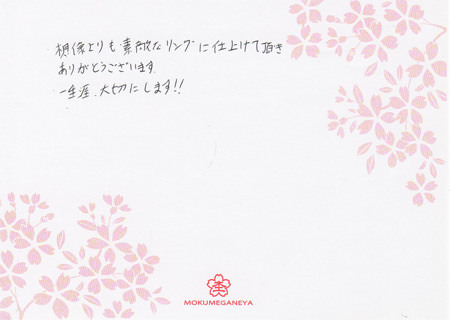 想像よりも素敵なリングに仕上げて頂き
ありがとうございます
一生涯、大切にします!!
MOKUMEGANEYA